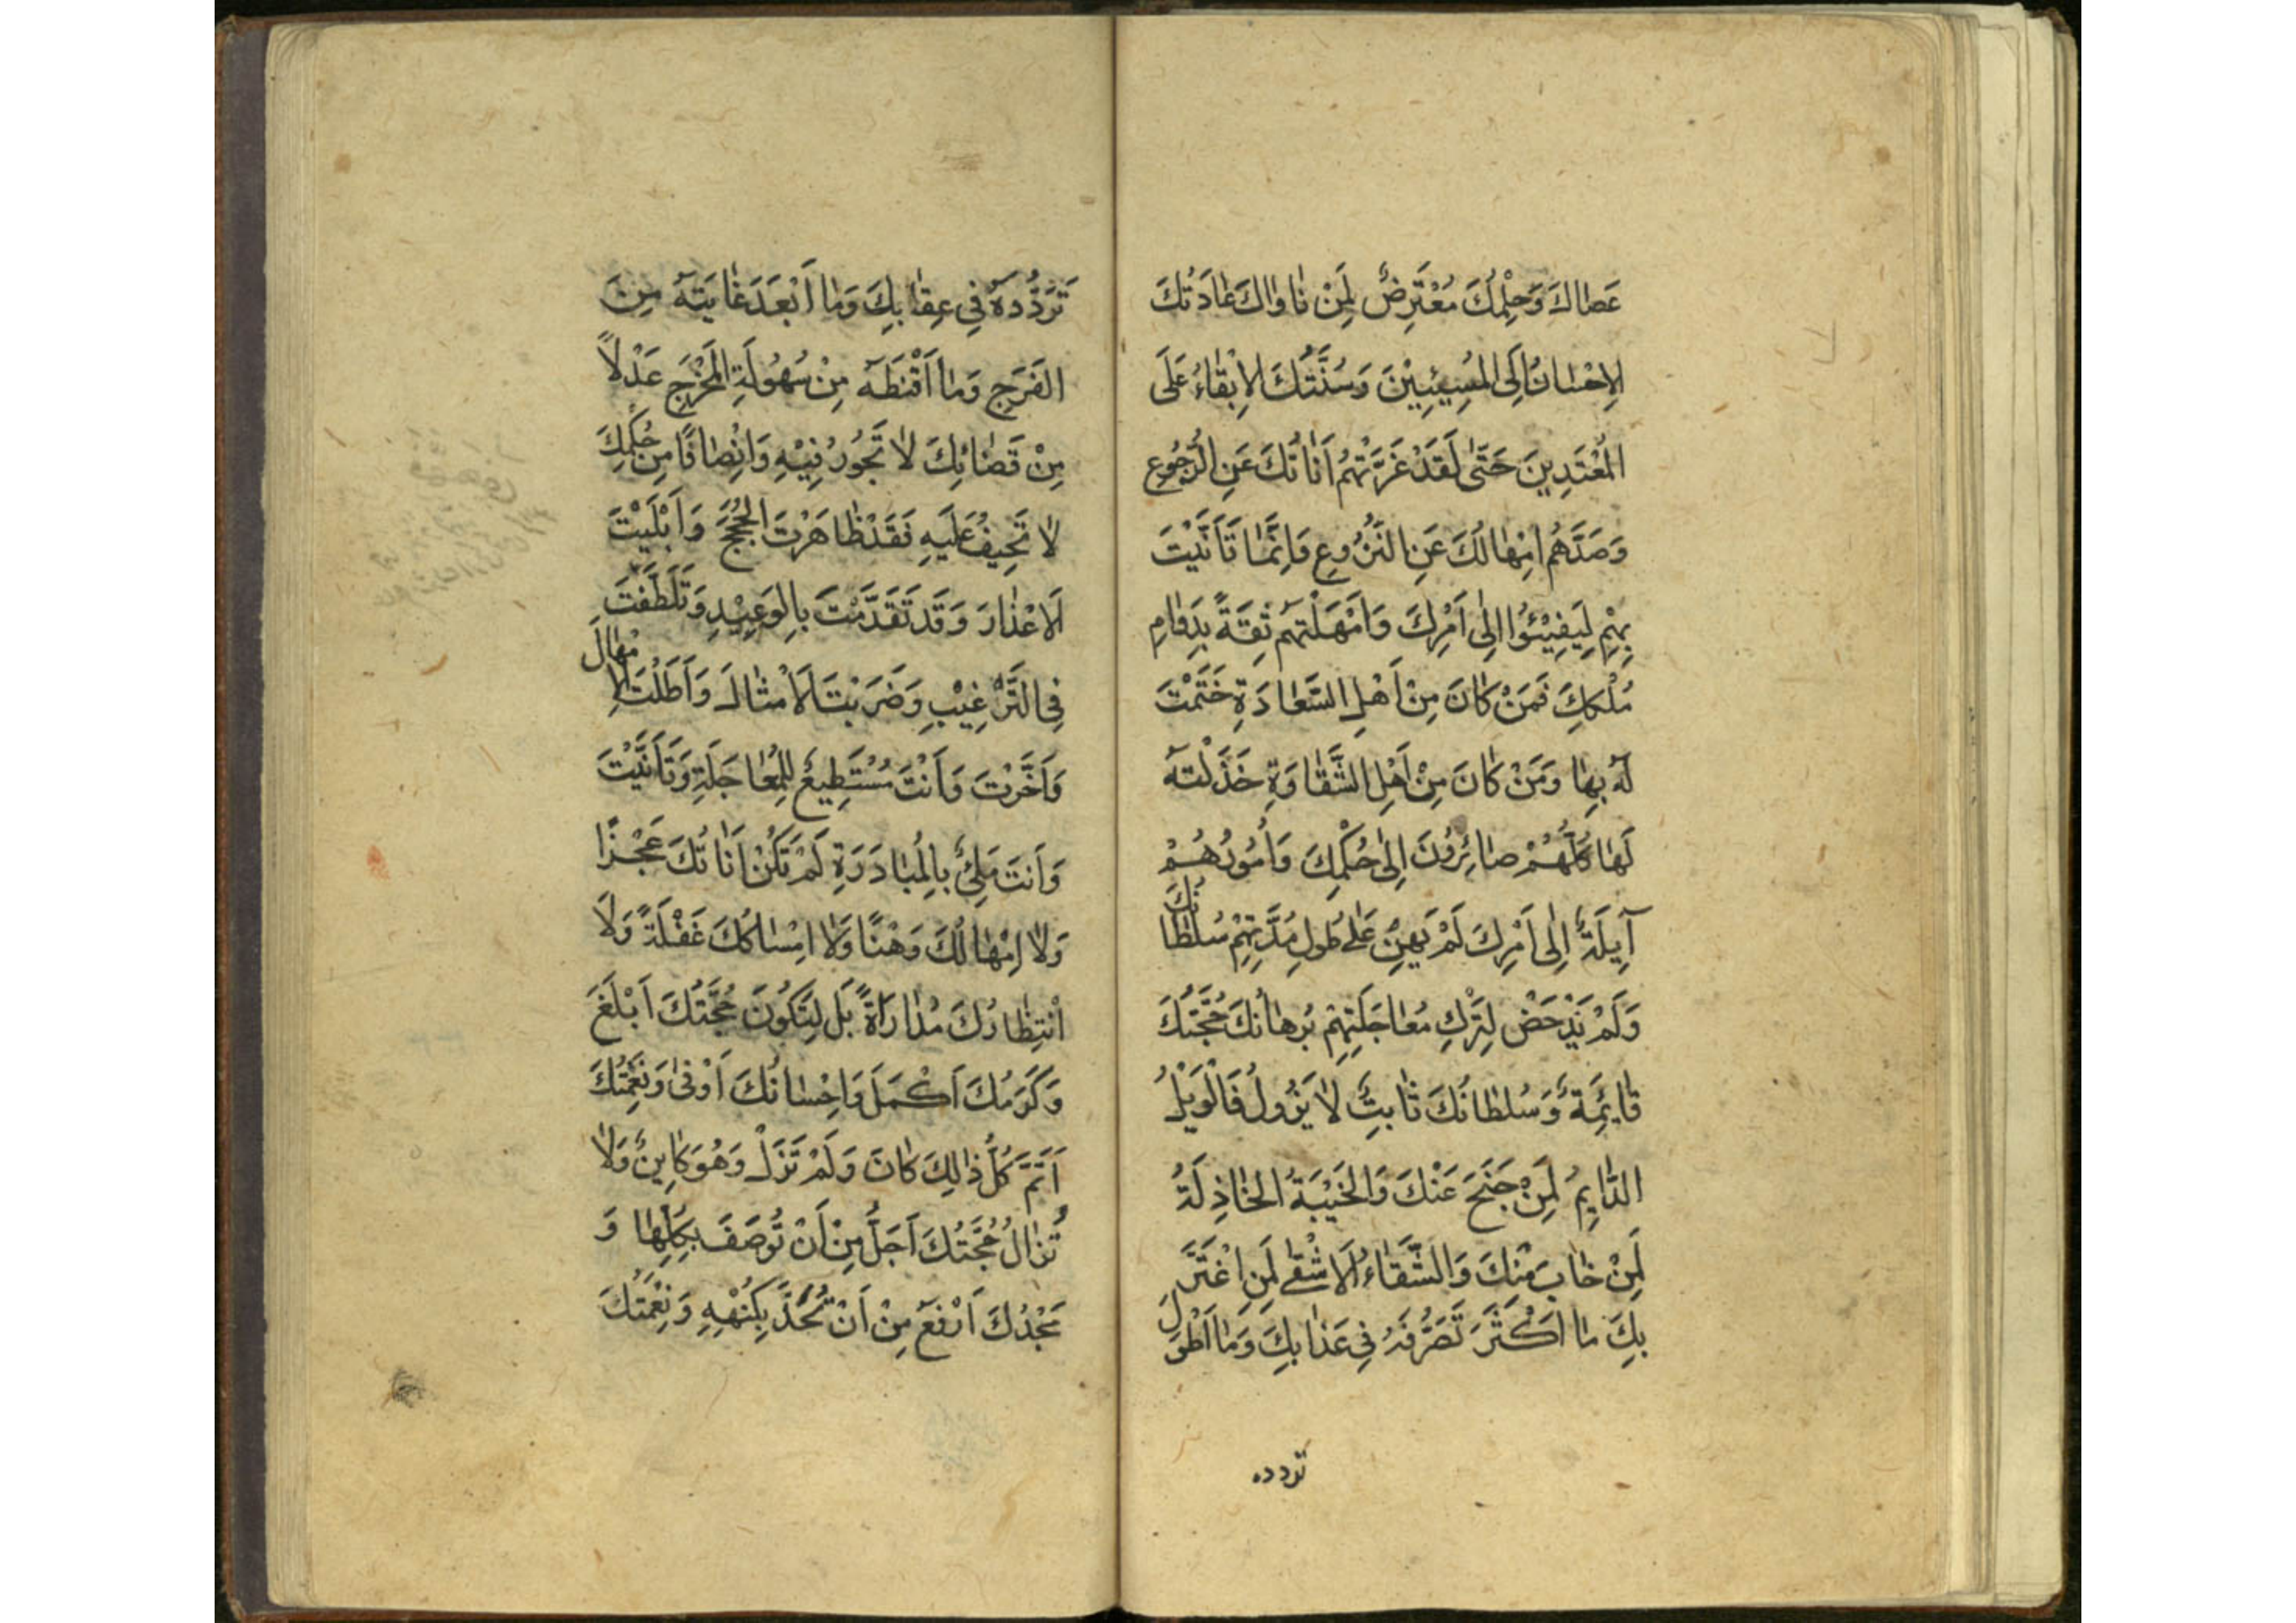 عَصَاكَ وَحِلْمُكَ مُعْتَرِضٌ لِمَنْ نَاوَاكَ عَادَتُكَ
الاِحْسَانُ اِلَى الْمُسِيئِيْنَ وَسُنَّتُكَ الاِبْقَاءُ عَلَى
الْمُعْتَدِينَ حَتَّى لَقَدْ غَرَّتْهُمْ اَنَاتُكَ عَنِ الرُّجُوعِ
وَصَدَّهُمْ اِمْهَالُكَ عَنِ النُّزُوعِ وَاِنَّمَا تَاَنَّيْتَ
بِهِمْ لِيَفِيْئُوْا اِلَى اَمْرِكَ وَاَمْهَلْتَهُمْ ثِقَةً بِدَوَامِ
مُلْكِكَ فَمَنْ كَانَ مِنْ اَهْلِ السَّعَادَةِ خَتَمْتَ
لَهُ بِهَا وَمَنْ كَانَ مِنْ اَهْلِ الشَّقَاوَةِ خَذَلْتَهُ
لَهَا كُلُّهُمْ صَائِرُوْنَ اِلَى حُكْمِكَ وَاُمُورُهُمْ
آيِلَةٌ اِلَى اَمْرِكَ لَمْ يَهِنْ عَلَى طُولِ مُدَّتِهِمْ سُلْطَانُكَ
وَلَمْ يَدْحَضْ لِتَرْكِ مُعَاجَلَتِهِمْ بُرْهَانُكَ حُجَّتُكَ
قَايِمَةٌ وَسُلْطَانُكَ ثَابِتٌ لَا يَزُولُ فَالْوَيْلُ
الدَّايِمُ لِمَنْ جَنَحَ عَنْكَ وَالْخَيْبَةُ الْخَاذِلَةُ
لِمَنْ خَابَ مِنْكَ وَالشَّقَاءُ الاَشْقَى لِمَنِ اغْتَرَّ
بِكَ مَا اَكْثَرَ تَصَرُّفَهُ فِي عَذَابِكَ وَمَا اَطْوَلَ
تردده
تَرَدُّدَهُ فِي عِقَابِكَ وَمَا اَبْعَدَ غَايَتَهُ مِنَ
الفَرَجِ وَمَا اَقْنَطَهُ مِنْ سُهُولَةِ الْمَخْرَجِ عَدْلًا
مِنْ قَضَائِكَ لَا تَجُورُ فِيْهِ وَاِنْصَافًا مِنْ حُكْمِكَ
لَا تَحِيفُ عَلَيهِ فَقَدْ ظَاهَرْتَ الْحُجَجَ وَاَبْلَيْتَ
الاَعْذَارَ وَقَدْ تَقَدَّمْتَ بِالوَعِيْدِ وَتَلَطَّفْتَ
فِي التَّرْغِيْبِ وَضَرَبْتَ الاَمْثَالَ وَاَطَلْتَ الاِمْهَالَ
وَاَخَّرْتَ وَاَنْتَ مُسْتَطِيعٌ لِلْمُعَاجَلَةِ وَتَاَنَّيْتَ
وَاَنتَ مَلِيٌ بِالْمُبَادَرَةِ لَمْ تَكُنْ اَنَاتُكَ عَجْزًا
وَلَا اِمْهَالُكَ وَهْنًا وَلَا اِمْسَاكُكَ غَفْلَةً وَلَا
اِنْتِظَارُكَ مُدَارَاةً بَل لِتَكُونَ حُجَّتُكَ اَبْلَغَ
وَكَرَمُكَ اَكْمَلَ وَاِحْسَانُكَ اَوْفَى وَنِعْمَتُكَ
اَتَمَّ كُلُّ ذَالِكَ كَانَ وَلَمْ تَزَلْ وَهُوَ كَايِنٌ وَلَا
تُزَالُ حُجَّتُكَ اَجَلُّ مِنْ اَنْ تُوصَفَ بِكُلِّهَا وَ
مَجْدُكَ اَرْفَعُ مِنْ اَنْ تُحَدَّ بِكُنْهِهِ وَنِعْمَتُكَ